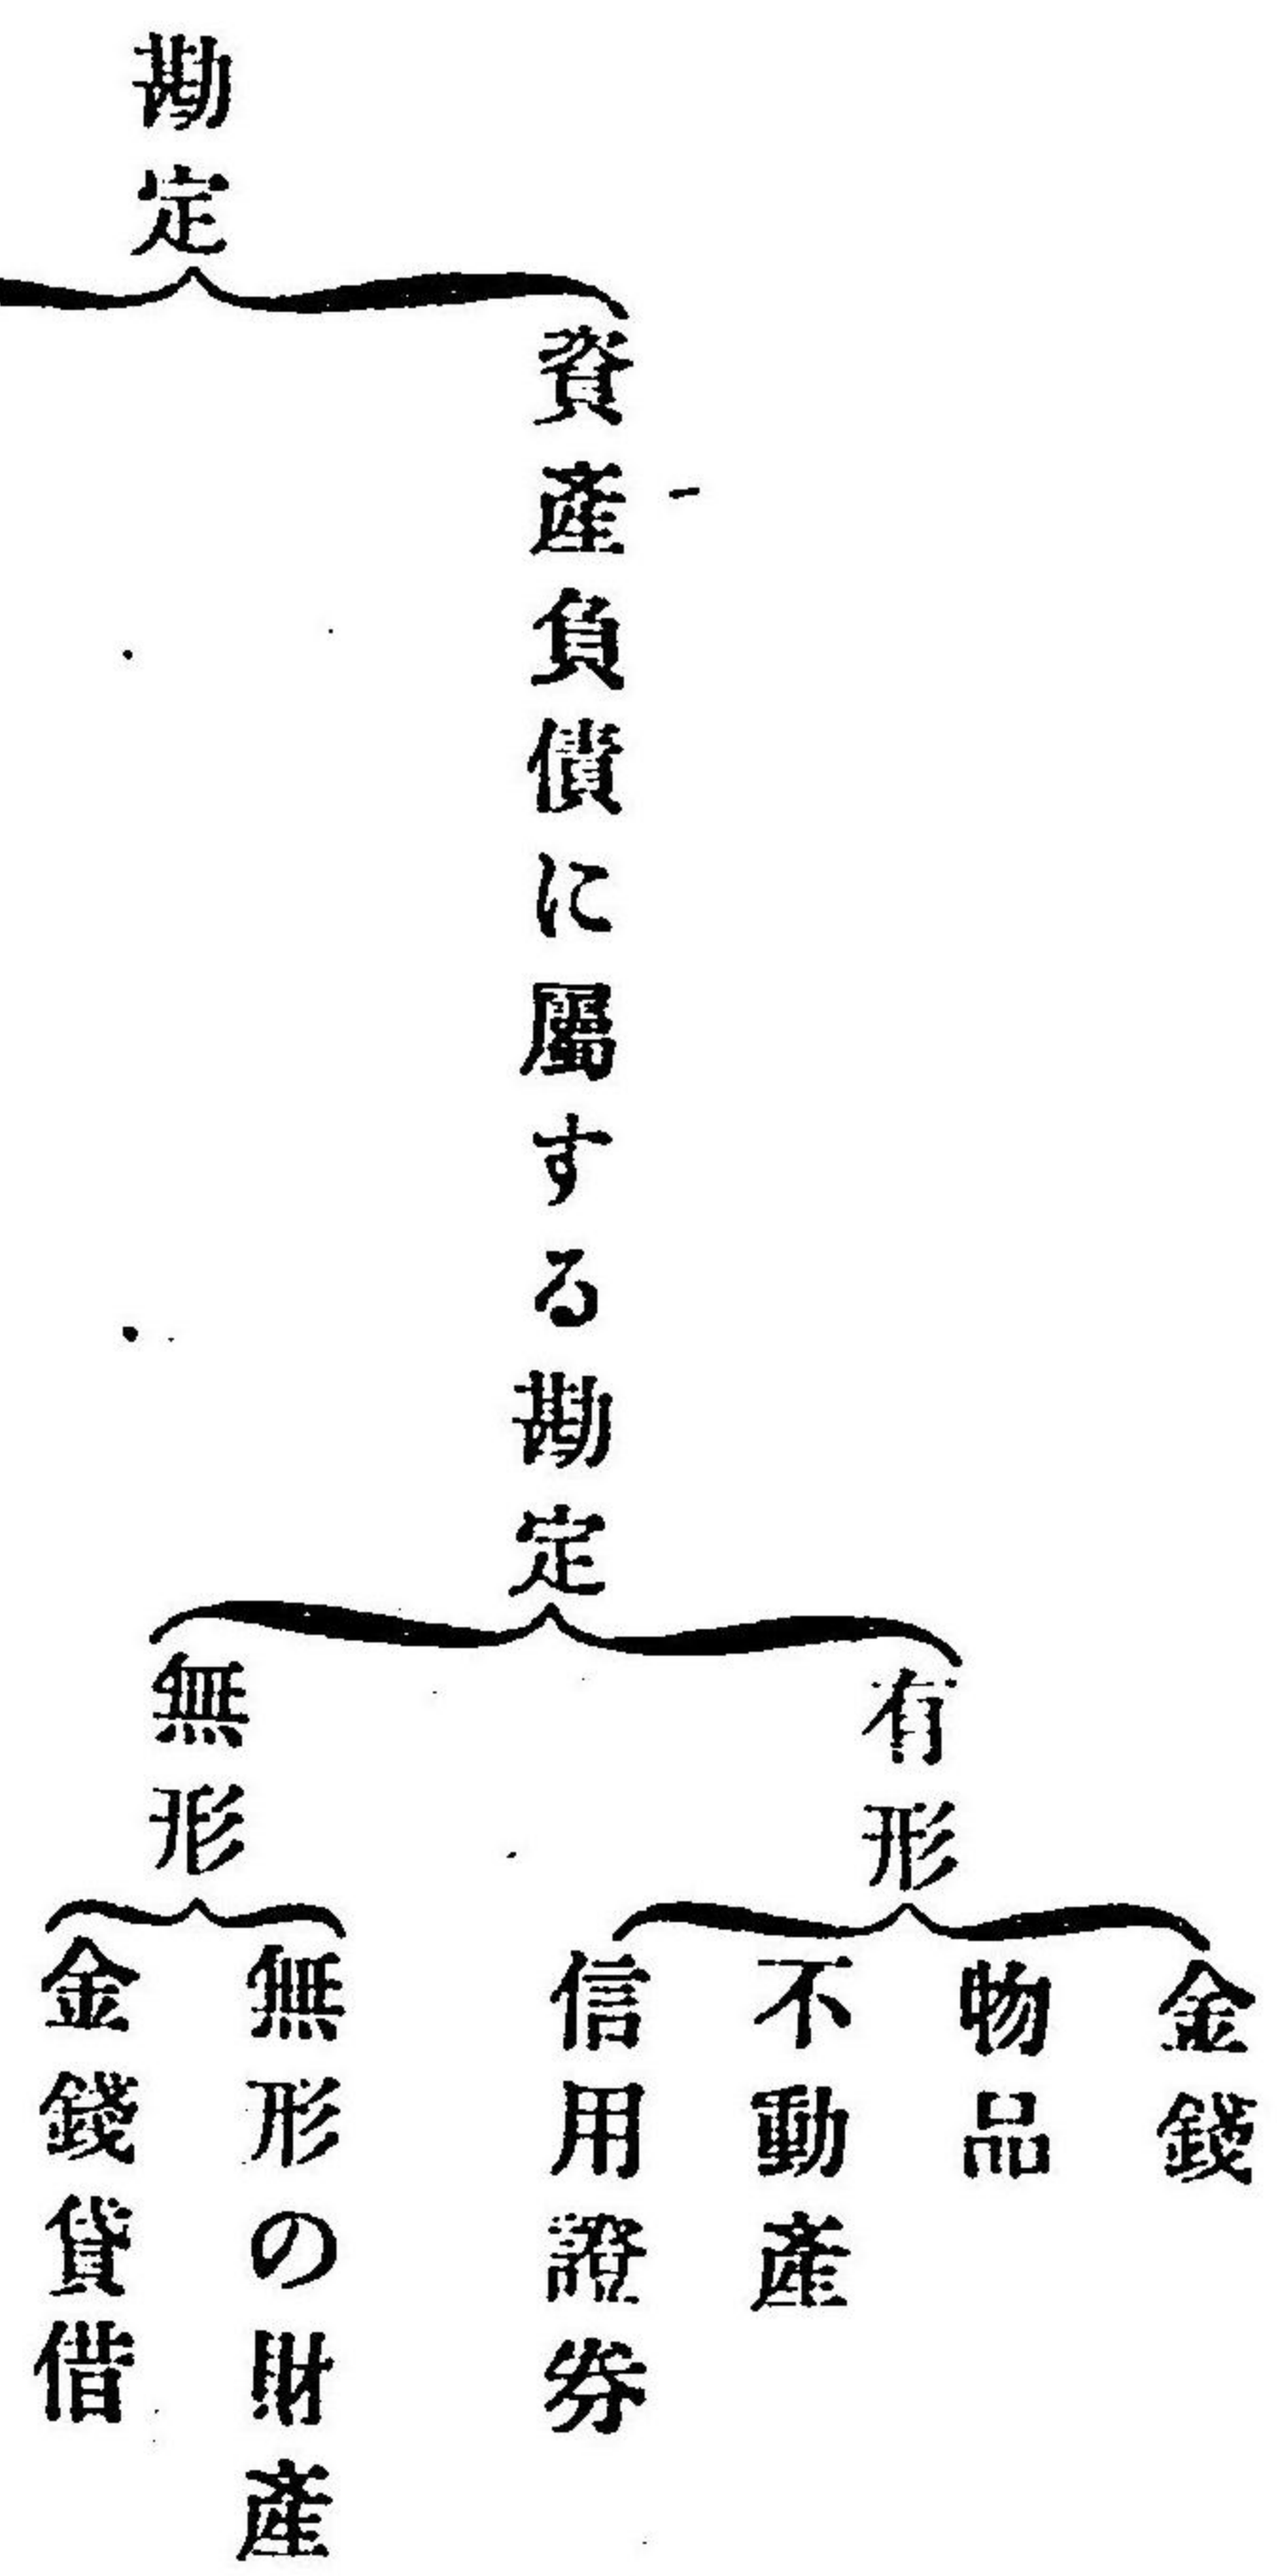 勘定
資產負債に屬する勘定
有形
金錢
物品
不動產
信用證券
無形
無形の財產
金錢貸借